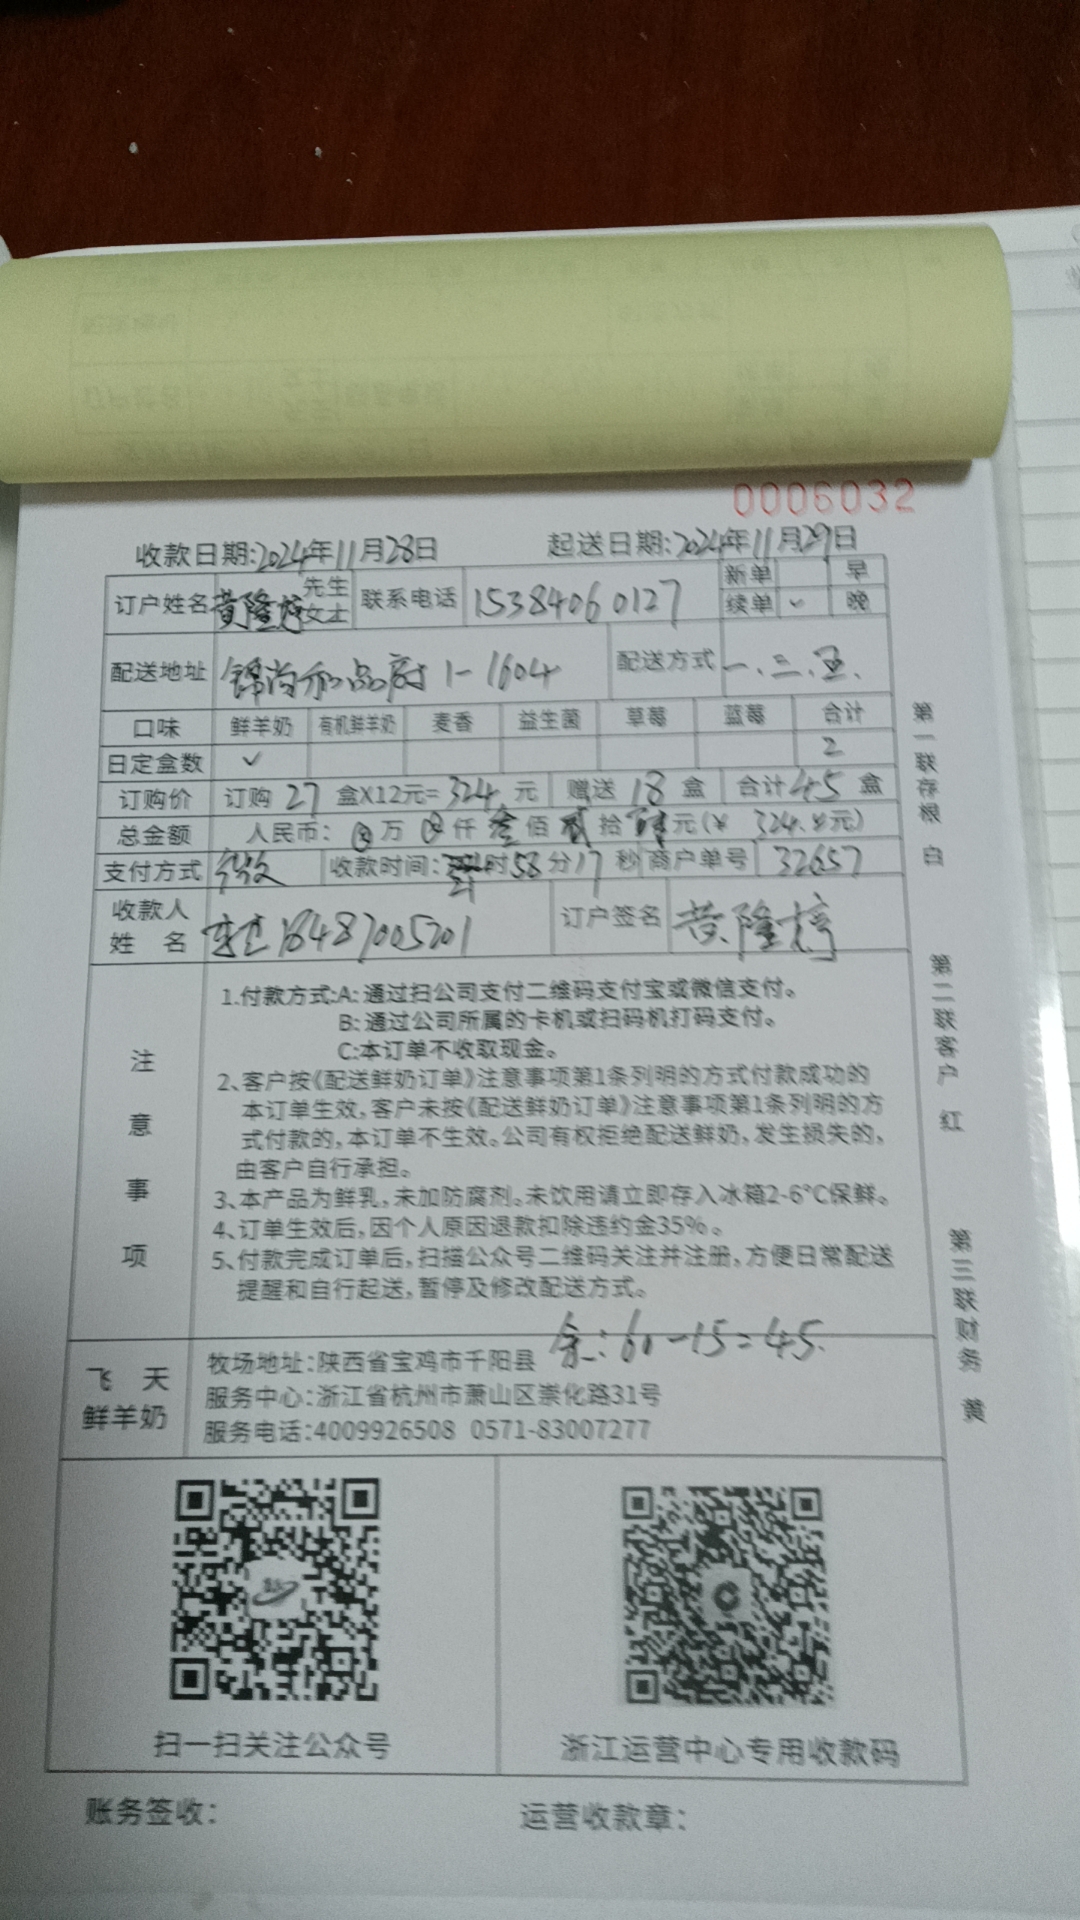 0006032
收款日期:2024年11月28日 起送日期:2024年11月29日
订户姓名 黄隆婷 先生 女士 联系电话 15384060127 新单 早
续单 ✓ 晚
配送地址 锦尚和品府 1-1604 配送方式 一.三.五.
口味 鲜羊奶 有机鲜羊奶 麦香 益生菌 草莓 蓝莓 合计
日定盒数 ✓ 2
订购价 订购 27 盒X12元=324 元 赠送 18 盒 合计 45 盒
总金额 人民币: 万 仟 叁佰 贰拾 肆元(¥ 324.元)
支付方式 收款时间: 21时58分17秒 商户单号 32657
收款人
姓 名 18487005201 订户签名 黄隆婷
注意事项
1.付款方式:A:通过扫公司支付二维码支付宝或微信支付。
B:通过公司所属的卡机或扫码机打码支付。
C:本订单不收取现金。
2、客户按《配送鲜奶订单》注意事项第1条列明的方式付款成功的
本订单生效,客户未按《配送鲜奶订单》注意事项第1条列明的方
式付款的,本订单不生效。公司有权拒绝配送鲜奶,发生损失的,
由客户自行承担。
3、本产品为鲜乳,未加防腐剂。未饮用请立即存入冰箱2-6℃保鲜。
4、订单生效后,因个人原因退款扣除违约金35%。
5、付款完成订单后,扫描公众号二维码关注并注册,方便日常配送
提醒和自行起送,暂停及修改配送方式。
余:60-15=45.
飞 天
鲜羊奶
牧场地址:陕西省宝鸡市千阳县
服务中心:浙江省杭州市萧山区崇化路31号
服务电话:4009926508 0571-83007277
扫一扫关注公众号
浙江运营中心专用收款码
账务签收: 运营收款章:
第一联存根 白
第二联客户 红
第三联财务 黄